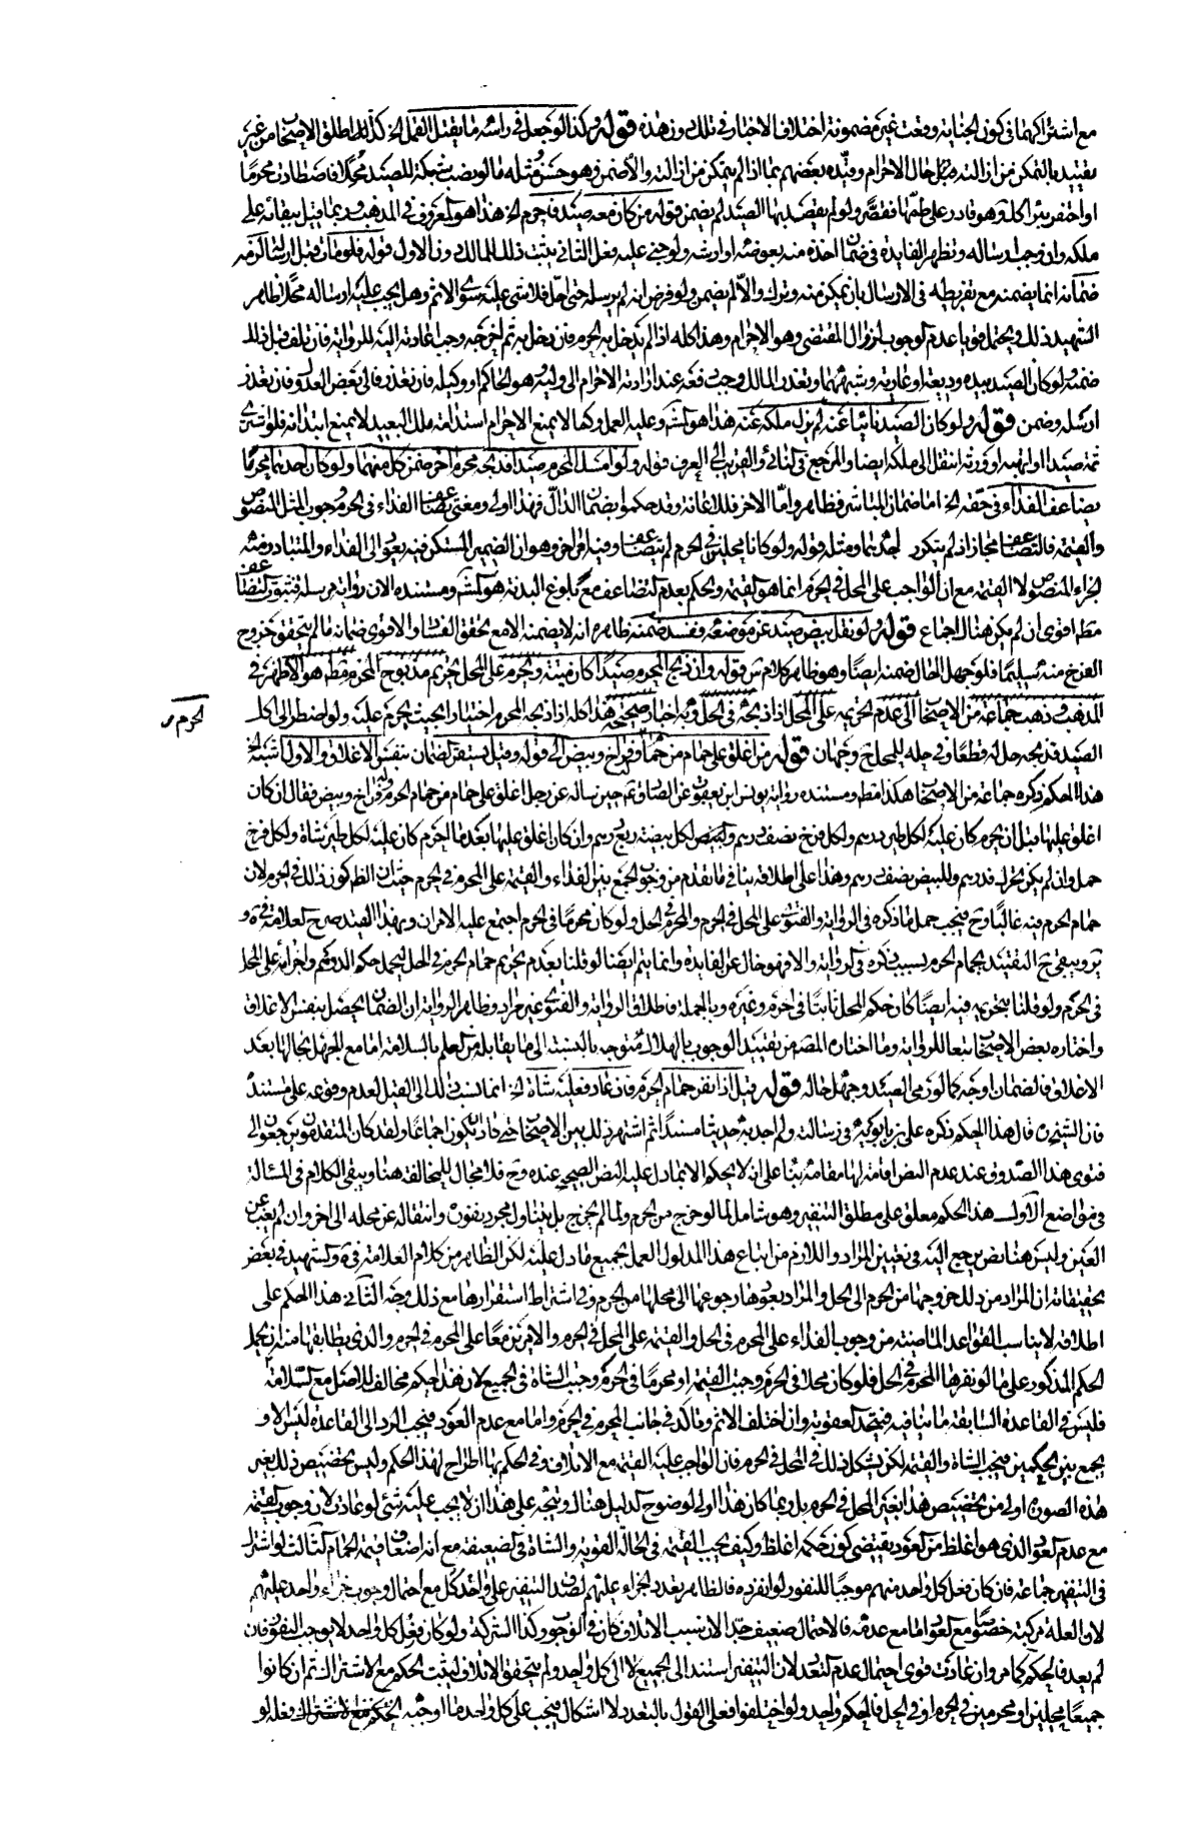 مع اشتراكهما في كون الجناية وقعت غير مضمونة اختلاف الاختيار في تلك دون هذه قوله وكذا لو جعل في راسه ما يقتل القمل الخ كذا اطلق الاصحاب من غير
تقييد بالتمكن من ازالته قبل حال الاحرام وقيده بعضهم بما اذا لم يتمكن من ازالته والا ضمن وهو حسن ومثله ما لو نصب شبكة للصيد محلا فاصطادت محرما
او احتفر بئرا كك وهو قادر على طمها فقصر ولو لم يقصد بها الصيد لم يضمن قوله من كان معه صيد فاحرم الخ هذا هو المعروف في المذهب وربما قيل ببقائه على
ملكه وان وجب ارساله وتظهر الفايدة في ضمان اخذه منه بعوضه او ارشه ولو جنى عليه فعلى الثاني يثبت ذلك للمالك دون الاول قوله فلو مات قبل ارساله لزمه
ضمانه انما يضمنه مع تفريطه في الارسال بان يمكن منه وترك والا لم يضمن ولو فرض انه لم يرسله حتى احل فلا شئ عليه سوى الاثم وهل يجب عليه ارساله محلا ظاهر
الشهيد ذلك ويحتمل قويا عدم الوجوب لزوال المقتضي وهو الاحرام وهذا كله اذا لم يدخل به الحرم فان دخل به ثم اخرجه وجب اعادته اليه للرواية فان تلف قبل ذلك
ضمنه ولو كان الصيد بيده وديعة او عارية وشبههما وتعذر المالك وجب دفعه عند ارادته الاحرام الى وليه وهو الحاكم او وكيله فان تعذر فالى بعض العدول فان تعذر
ارسله وضمن قوله ولو كان الصيد نائيا عنه لم يزل ملكه عنه هذا هو المشهور وعليه العمل وكما لا يمنع الاحرام استدامة ملك البعيد لا يمنع ابتدائه فلو اشترى
ثمة صيدا او اتهبه او ورثه انتقل الى ملكه ايضا والمرجع في النائي والقريب الى العرف قوله ولو امسك المحرم صيدا فذبحه محرم اخر ضمن كل منهما ولو كان احدهما محرما
يضاعف الفداء في حقه الخ اما ضمان المباشر فظاهر واما الاخر فللاعانة وقد حكموا بضمان الدال فهذا اولى ومعنى تضاعف الفداء في الحرم وجوب المثل المنصوص
والقيمة فالتضاعف مجاز اذ لم يتكرر احدهما ومثله قوله ولو كانا محلين في الحرم لم يتضاعف وفيه امر اخر وهو ان الضمير المستكن فيه يعود الى الفداء والمتبادر منه
الجزاء المنصوص لا القيمة مع ان الواجب على المحل في الحرم انما هو القيمة والحكم بعدم التضاعف مع بلوغ البدنة هو المشهور ومستنده الان رواية مرسلة فثبوت التضاعف
مطلقا اقوى ان لم يكن هناك اجماع قوله ولو نقل بيض صيد عن موضعه ففسد ضمنه ظاهره انه لا يضمنه الا مع تحقق الفساد والاقوى ضمانه ما لم يتحقق خروج
الفرخ منه سليما فلو جهل الحال ضمنه ايضا وهو ظاهر كلام س قوله وان ذبح المحرم صيدا كان ميتة ويحرم على المحل تحريم مذبوح المحرم مطلقا هو الاظهر في
المذهب وذهب جماعة من الاصحاب الى عدم تحريمه على المحل اذا ذبحه في الحل وفيه اخبار صحيحة هذا كله اذا ذبحه المحرم اختيارا بحيث يحرم عليه ولو اضطر الى اكل
الحرم
الصيد فذبحه حل له قطعا وفي حله للمحل ح وجهان قوله من اغلق على حمام من حمام الحرم وله فراخ وبيض الى قوله وقيل يستقر الضمان بنفس الاغلاق والاول اشبه الخ
هذا الحكم ذكره جماعة من الاصحاب هكذا مطلقا ومستنده رواية يونس ابن يعقوب عن الصادق حين ساله عن رجل اغلق على حمام من حمام الحرم وفراخ وبيض فقال ان كان
اغلق عليها قبل ان يحرم كان عليه لكل طير درهم ولكل فرخ نصف درهم وللبيض لكل بيضة ربع درهم وان كان اغلق عليها بعد ما احرم كان عليه لكل طير شاة ولكل فرخ
حمل وان لم يكن تحرك فدرهم وللبيض نصف درهم وهذا على اطلاقه ينافي ما تقدم من وجوب الجمع بين الفداء والقيمة على المحرم في الحرم حيث ان الظاهر كون ذلك في الحرم لان
حمام الحرم فيه غالبا وح فيجب حمل ما ذكره في الرواية والفتوى على المحل في الحرم والمحرم في الحل ولو كان محرما في الحرم اجتمع عليه الامران وبهذا القيد صرح العلامة في كره و
ير ويبقى ح التقييد بحمام الحرم بسبب ذكره في الرواية والا فهو خال عن الفايدة وانما يتم ايضا لو قلنا بعدم تحريم حمام الحرم في الحل ليحمل حكم الدرهم واخواه على المحل
في الحرم ولو قلنا بتحريمه فيه ايضا كان حكم المحل ثابتا في الحرم وغيره وبالجملة فاطلاق الرواية والفتوى غير مراد وظاهر الرواية ان الضمان يحصل بنفس الاغلاق
واختاره بعض الاصحاب تبعا للرواية وما اختاره المصنف من تقييد الوجوب بالهلاك متوجه بالنسبة الى ما يقابله من العلم بالسلامة اما مع الجهل بحالها بعد
الاغلاق فالضمان اوجه كما لو رمى الصيد وجهل حاله قوله قيل اذا نفر حمام الحرم فان عاد فعليه شاة الخ انما نسب ذلك الى القيل لعدم وقوعه على مستند
فان الشيخ قال هذا الحكم ذكره علي بن بابويه في رسالته ولم اجد به حديثا مسندا ثم اشتهر ذلك بين الاصحاب حتى كاد ان يكون اجماعا ولقد كان المتقدمون يرجعون الى
فتوى هذا الصدوق عند عدم النص اقامة لها مقامه بناء على انه لا يحكم الا بما دل عليه النص الصحيح عنده وح فلا مجال للمخالفة هنا ويبقى الكلام في المسئلة
في مواضع الاول هذا الحكم معلق على مطلق التنفير وهو شامل لما لو خرج من الحرم ولما لم يخرج بل يتناول مجرد نفوره وانتقاله عن محله الى اخر وان لم يغب عن
العين وليس هنا نص يرجع اليه في تعيين المراد واللازم من اتباع هذا المدلول العمل بجميع ما دل عليه لكن الظاهر من كلام العلامة في كره والشهيد في بعض
تحقيقاته ان المراد من ذلك خروجها من الحرم الى الحل والمراد بعودها رجوعها الى محلها من الحرم وفي اشتراط استقرارها مع ذلك وجه الثاني هذا الحكم على
اطلاقه لا يناسب القواعد الماضية من وجوب الفداء على المحرم في الحل والقيمة على المحل في الحرم والامرين معا على المحرم في الحرم والذي يطابقها منه ان يحمل
الحكم المذكور على ما لو نفرها المحرم في الحل فلو كان محلا في الحرم وجبت القيمة او محرما في الحرم وجبت الشاة في الجميع لان هذا حكم مخالف للاصل مع السلامة
فليس في القاعدة السابقة ما ينافيه فيتحد العقوبة وان اختلف الاثم وتاكد في جانب المحرم في الحرم واما مع عدم العود فيجب الرد الى القاعدة لئلا
يجمع بين الحكمين فيجب الشاة والقيمة لكن يشكل ذلك في المحل في الحرم فان الواجب عليه القيمة مع الاتلاف وفي الحكم بها اطراح لهذا الحكم وليس تخصيص ذلك بغير
هذه الصورة اولى من تخصيص هذا بغير المحل في الحرم بل ربما كان هذا اولى لوضوح الدليل هناك ويتجه على هذا ان لا يجب عليه شئ لو عادت لان وجوب القيمة
مع عدم العود الذي هو اغلظ من العود يقتضي كون حكمه اغلظ وكيف يجب القيمة في الحالة القوية والشاة في الضعيفة مع انه اضعاف قيمة الحمام الثالث لو اشترك
في التنفير جماعة فان كان فعل كل واحد منهم موجبا للنفور لو انفرد فالظاهر تعدد الجزاء عليهم لصدق التنفير على واحد كل مع احتمال وجوب جزاء واحد عليهم
لان العلة مركبة خصوصا مع العود اما مع عدمه فالاحتمال ضعيف جدا لان سبب الاتلاف كان في الوجود كذا الشركة ولو كان فعل كل واحد لا يوجب النفور فان
لم يعد فالحكم كما مر وان عادت قوى احتمال عدم التعدد لان التنفير استند الى الجميع لا الى كل واحد ولم يتحقق الاتلاف ليثبت الحكم مع الاشتراك ثم ان كانوا
جميعا محلين او محرمين في الحرم او في الحل فالحكم واحد ولو اختلفوا فعلى القول بالتعدد لا اشكال فيجب على كل واحد ما اوجبه الحكم مع الاشتراك فعله لو